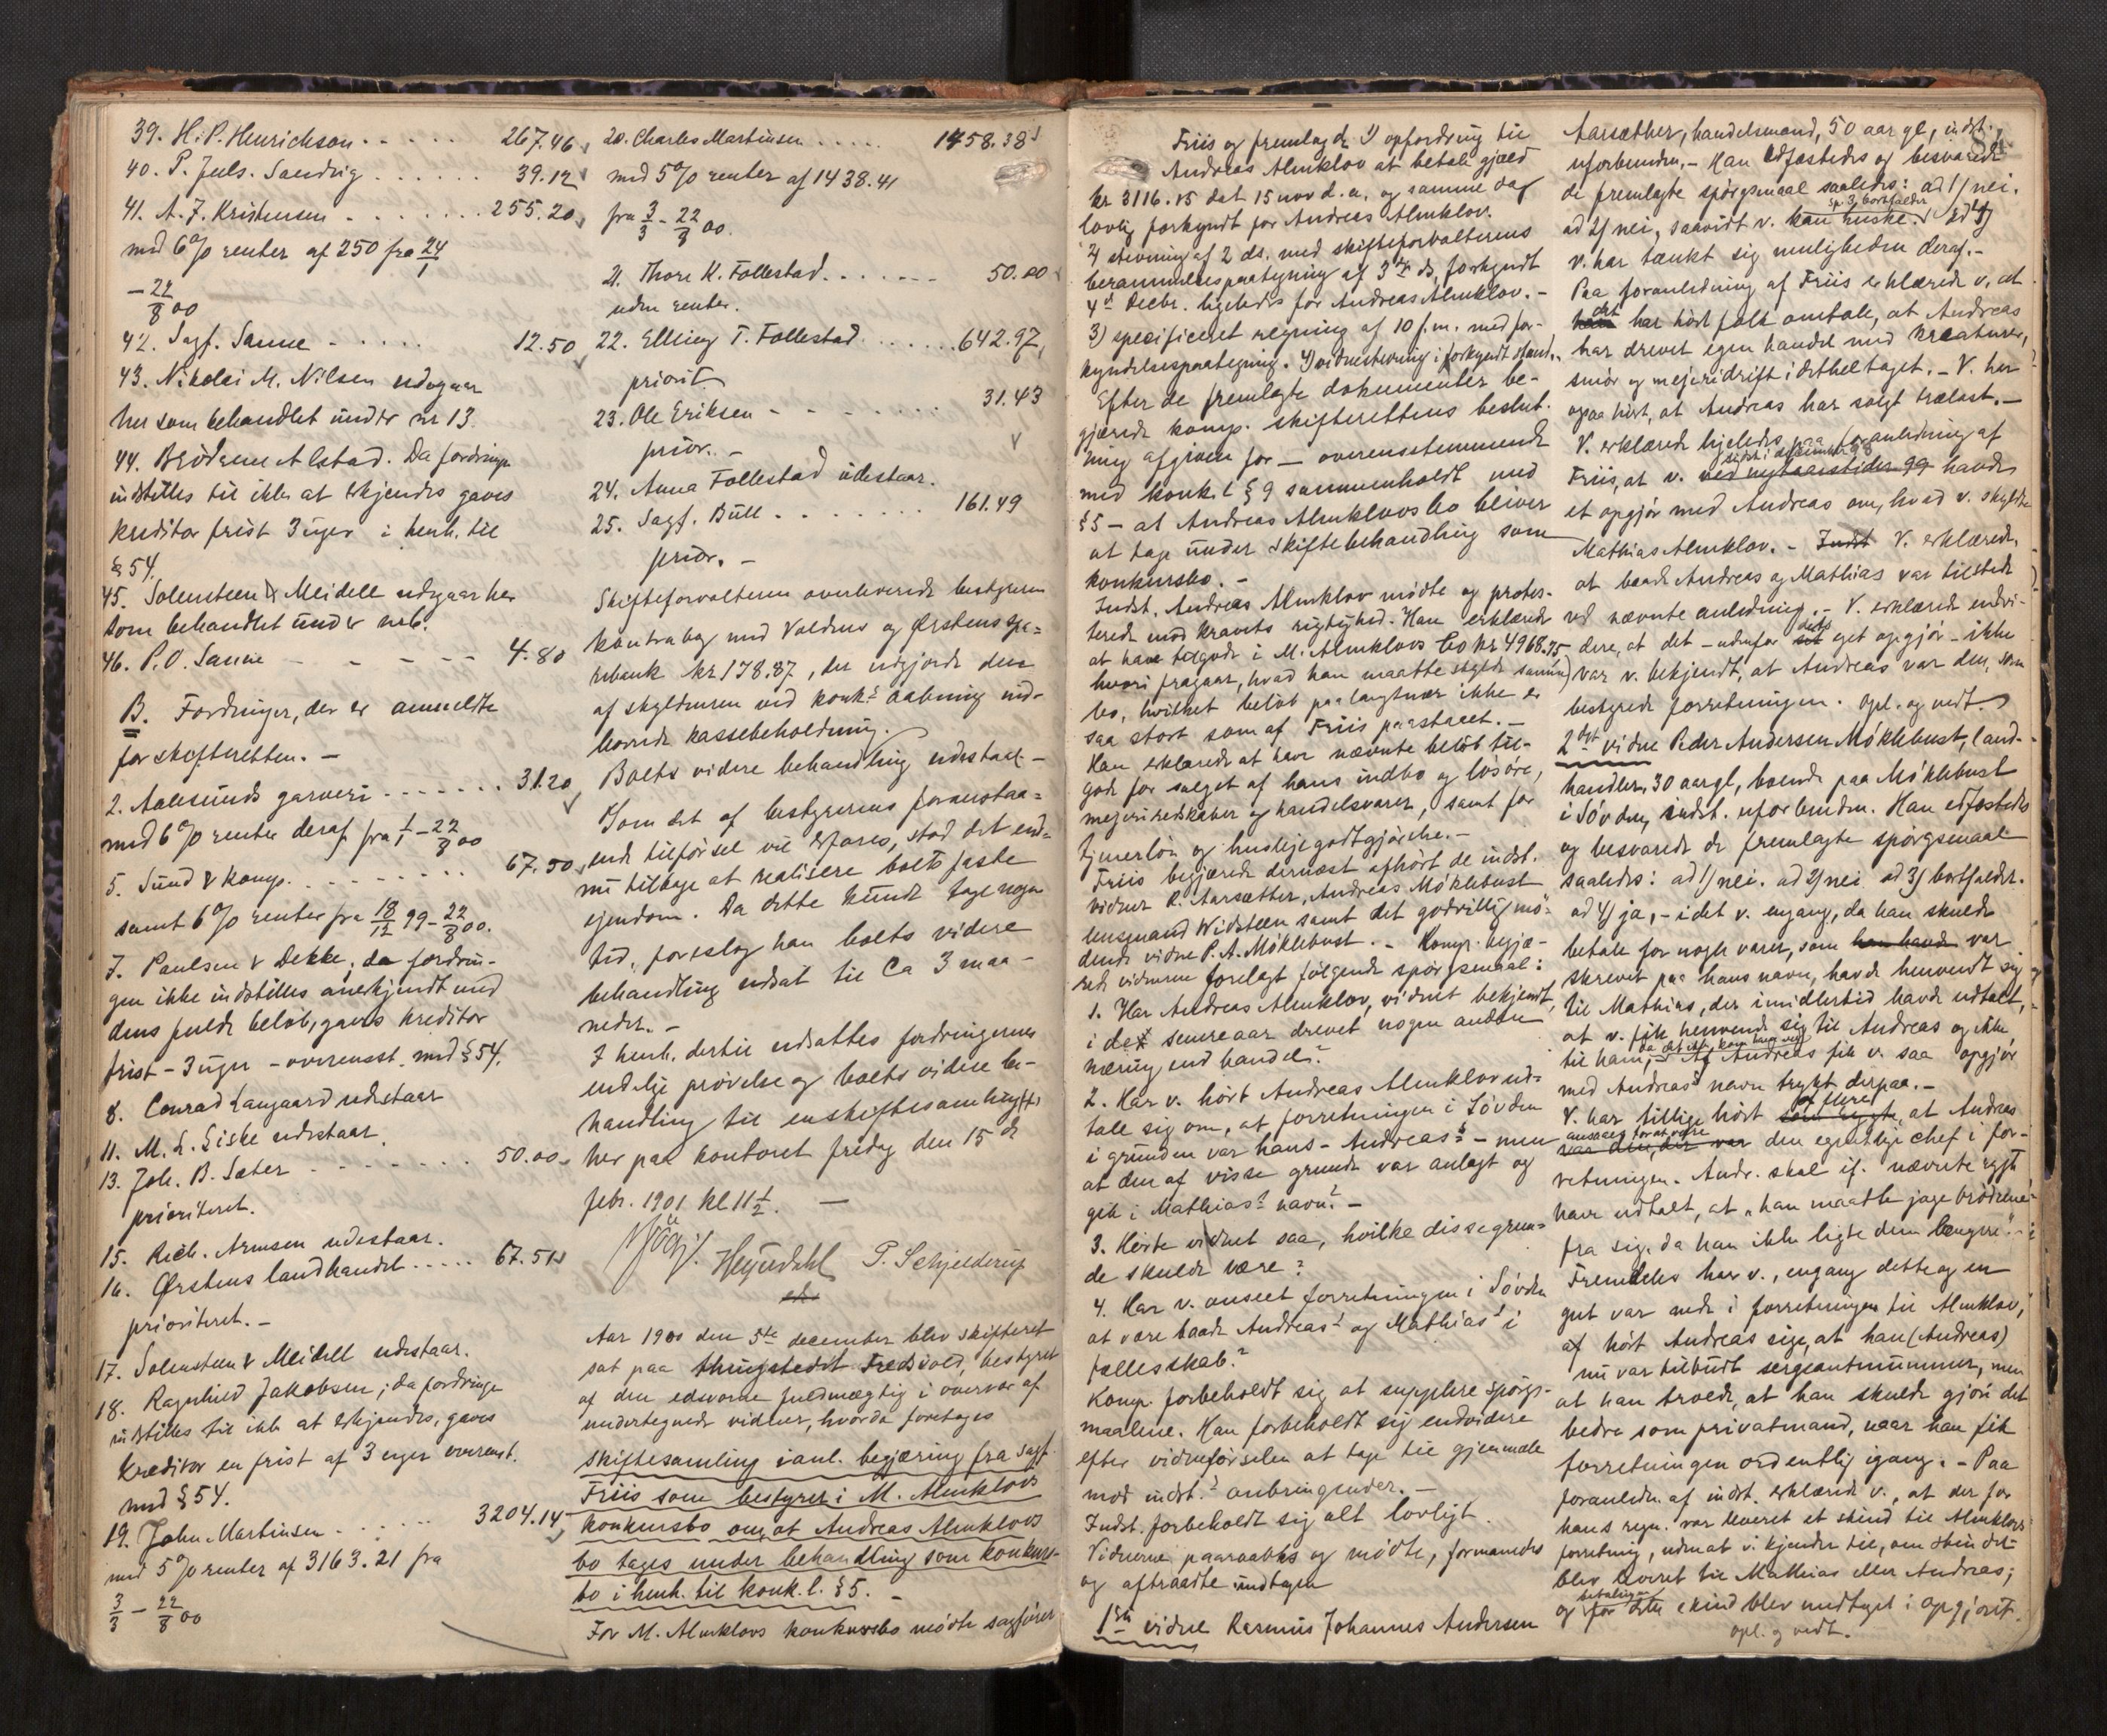 39. H. P. Henrichson . . . . . 267.46
40. P. Juls. Sandvig . . . . . . 39.12
41. A. J. Kristensen . . . . . . . 255.20
med 6 % renter af 250 fra 24/1
- 22/8 00
42. Sagf. Sanne . . . . . 12.50
43. Nikolai M. Nilsen udgaar
her som behandlet under nr 13.
44. Brødrene Alstad. Da fordringen
indstilles til ikke at erkjendes gaves
kreditor frist 3 uger i henh. til
§ 54.
45. Solensteen & Meidell udgaar her
som behandlet under nr 6.
46. P. O. Sanne - - - - - 4.80
B. Fordringer, der er anmeldte
for skifteretten. -
2. Aalesunds garveri . . . . . . . 31.20
med 6 % renter deraf fra 1/1 - 22/8 00
5. Sund & komp. . . . . . . . . 67.50
samt 6 % renter fra 18/12 99 - 22/8 00.
7. Paulsen & Dekke; da fordrin-
gen ikke indstilles anerkjendt med
dens fulde beløb, gaves kreditor
frist - 3 uger - overensst. med § 54.
8. Conrad Langaard udestaar
11. M. L. Giske udestaar.
13. Joh. B. Sæter - - - - - - - 50.00
prioriteret.
15. Rich. Arnesen udestaar.
16. Ørstens landhandel . . . . . 67.51
prioriteret. -
17. Solensteen & Meidell udestaar.
18. Ragnhild Jakobsen; da fordringen
indstilles til ikke at erkjendes, gaves
kreditor en frist af 3 uger overenst.
med § 54.
19. John Martinsen . . . . . . 3204.14
med 5 % renter af 3163.21 fra
3/3 - 22/8 00
20. Charles Martinsen . . . . . 1458.38
med 5 % renter af 1438.41
fra 3/3 - 22/8 00.
21. Thore K. Follestad . . . . . . - 50.00
uden renter.
22. Elling T. Follestad . . . . . . 642.97
priorit.
23. Ole Eriksen - - - - . . . . 31.43
prior. -
24. Anna Follestad udestaar.
25. Sagf. Bull - . . . . . . . 161.49
prior. -
Skifteforvalteren overleverede bestyreren
kontrabog med Voldens og Ørstens spa-
rebank kr 178.87, der udgjorde den
af skyldneren ved konks aabning ind-
leverede kassebeholdning.
Boets videre behandling udestaar. -
Som det af bestyrerens foranstaa-
ende tilførsel vil erfares, stod det end-
nu tilbage at realisere boets faste
ejendom. Da dette kunde tage nogen
tid, foreslog han boets videre
behandling udsat til Ca 3 maa-
neder. -
I henh. dertil udsattes fordringernes
endelige prøvelse og boets videre be-
handling til en skiftesamling
her paa kontoret fredag den 15de
febr. 1901 kl 11 1/2. -
Heyerdahl P. Schjelderup
Aar 1900 den 5te december blev skifteret
sat paa thingstedet Fredsvold, bestyret
af den edsvorne fuldmægtig i overvær af
undertegnede vidner, hvorda foretoges
skiftesamling i anl. begjæring fra sagf.
Friis som bestyrer i M. Almklovs
konkursbo om, at Andreas Almklovs
bo tages under behandling som konkurs-
bo i henh. til konk.l. § 5. -
For M. Almklovs konkursbo mødte sagfører
Friis og fremlagde 1) opfordring til
Andreas Almklov at betale gjæld
kr 3116.15 dat 15 nov d. a. og samme dag
lovlig forkyndt for Andreas Almklov.
2) stevning af 2 ds. med skifteforvalterens
berammelsespaategning af 3die ds, forkyndt
4de decbr. ligeledes for Andreas Almklov. -
3) specificeret regning af 10 f.m. med for-
kyndelsespaategning. 4) vidnestevning i forkyndt stand.
Efter de fremlagte dokumenter be-
gjærede komp. skifterettens beslut-
ning afgiven for - overensstemmende
med konk.l § 9 sammenholdt med
§ 5 - at Andreas Almklovs bo bliver
at tage under skiftebehandling som
konkursbo. -
Indst. Andreas Almklov mødte og protes-
terede mod kravets rigtighed. Han erklærede
at have tilgode i M. Almklovs bo kr 4968.75
hvori fragaar, hvad han maatte skylde samme
bo, hvilket beløb paa langtnær ikke er
saa stort som af Friis paastaaet. -
Han erklærede at have nævnte beløb til-
gode for salget af hans indbo og løsøre,
mejeriredskaber og handelsvarer, samt for
tjenerløn og huslejegodtgjørelse. -
Friis begjærede dernæst afhørt de indst.
vidner R. Aarsæther, Andreas Møklebust
lensmand Widsteen samt det godvillig mø-
dende vidne P. A. Møklebust. - Komp. begjæ-
rede vidnerne forelagt følgende spørgsmaal:
1. Har Andreas Almklov, vidnet bekjendt,
i de senere aar drevet nogen anden
næring end handel?
2. Har v. hørt Andreas Almklov ud-
tale sig om, at forretningen i Søvden
i grunden var hans - Andreas's - men
at den af visse grunde var anlagt og
gik i Mathias's navn? -
3. Hørte vidnet saa, hvilke disse grun-
de skulde være?
4. Har v. anseet forretningen i Søvden
at være baade Andreas's og Mathias's i
fællesskab?
Komp. forbeholdt sig at supplere spørgs-
maalene. Han forbeholdt sig endvidere
efter vidneførselen at tage til gjenmæle
mod indst.s anbringender. -
Indst. forbeholdt sig alt lovligt.
Vidnerne paaraabtes og mødte, formanedes
og aftraadte undtagen
1ste vidne Rasmus Johannes Andersen
84
Aarsæther, handelsmand, 50 aar gl, indst.
uforbunden. - Han edfæstedes og besvarede
de fremlagte spørgsmaal saaledes: ad 1) nei.
sp. 3 bortfalder
ad 2) nei, saavidt v. kan huske. ad 4)
v. har tænkt sig muligheden deraf. -
Paa foranledning af Friis erklærede v, at
det
han har hørt folk omtale, at Andreas
har drevet egen handel med kreaturer,
smør og mejeridrift i detheletaget. - V. har
ogsaa hørt, at Andreas har solgt trælast. -
V. erklærede ligeledes paa foranledning af
sidst i december 98
Friis, at v. ved nytaarstider 99 havde
et opgjør med Andreas om, hvad v. skyldte
Mathias Almklov. - Indst V. erklærede,
at baade Andreas og Mathias var tilstede
ved nævnte anledning. - V. erklærede endvi-
dets
dere, at det - udenfor sit eget opgjør - ikke
var v. bekjendt, at Andreas var den, som
bestyrede forretningen. Opl. og vedt.
2det vidne Peder Andersen Møklebust, land-
handler, 30 aar gl, boende paa Møklebust
i Søvden, indst. uforbunden. Han edfæstedes
og besvarede de fremlagte spørgsmaal
saaledes: ad 1) nei. ad 2) nei ad 3) bortfalder.
ad 4) ja, - idet v. engang, da han skulde
betale for nogle varer, som han havde var
skrevet paa hans navn, havde henvendt sig
til Mathias, der imidlertid havde udtalt,
at v. fik henvende sig til Andreas og ikke
da det ikke kom ham ved
til ham, - Af Andreas fik v. saa opgjør
med Andreas's navn trykt derpaa. -
af flere
V. har tillige hørt som rygte, at Andreas
ansaaes for at være
var den, der var den egentlige chef i for-
retningen. Andr. skal if. nævnte rygte
have udtalt, at "han maatte jage brødrene
fra sig, da han ikke ligte dem længere". -
Fremdeles har v., engang dette og en
gut var nede i forretningen til Almklov,
af hørt Andreas sige, at han (Andreas)
nu var tilbudt sergeantnummer, men
at han troede, at han skulde gjøre det
bedre som privatmand, naar han fik
forretningen ordentlig igang. - Paa
foranledn. af indst. erklærede v., at der for
hans regn. var leveret et skind til Almklovs
forretning, uden at v. kjender til, om skindet
blev leveret til Mathias eller Andreas;
betalingen
og for dette skind blev medtaget i opgjøret.
Opl. og vedt.